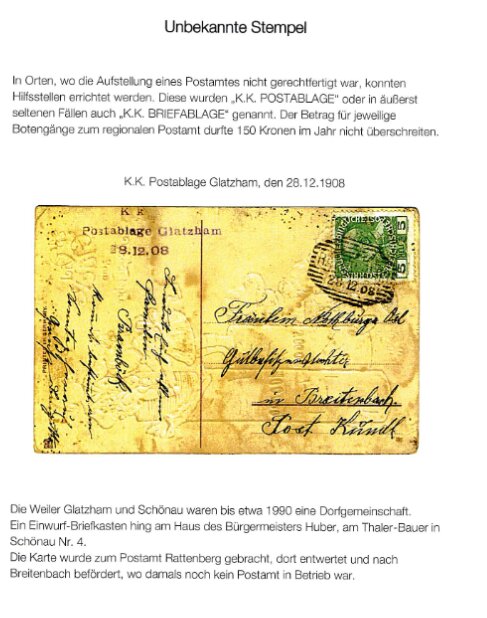 Unbekannte Stempel
In Orten, wo die Aufstellung eines Postamtes nicht gerechtfertigt war, konnten
Hilfsstellen errichtet werden. Diese wurden „K.K. POSTABLAGE" oder in äußerst
seltenen Fällen auch „K.K. BRIEFABLAGE" genannt. Der Betrag für jeweilige
Botengänge zum regionalen Postamt durfte 150 Kronen im Jahr nicht überschreiten.
K.K. Postablage Glatzham, den 28.12.1908
K k
Postablage Glatzham
28.12.08
5 5
28.12.08
Fräulein Nothburga
Gutbesitzerstochter
in Breitenbach
Post Kundl
Familie
Die Weiler Glatzham und Schönau waren bis etwa 1990 eine Dorfgemeinschaft.
Ein Einwurf-Briefkasten hing am Haus des Bürgermeisters Huber, am Thaler-Bauer in
Schönau Nr. 4.
Die Karte wurde zum Postamt Rattenberg gebracht, dort entwertet und nach
Breitenbach befördert, wo damals noch kein Postamt in Betrieb war.